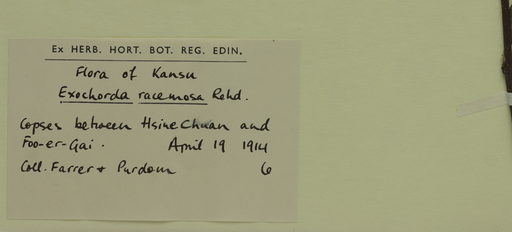 Ex HERB. HORT. BOT. REG. EDIN.
Flora of Kansu
Exochorda racemosa Rehd.
Copses between Hsine Chuan and
Foo-er-Gai. April 19 1914
Coll. Farrer & Purdom 6